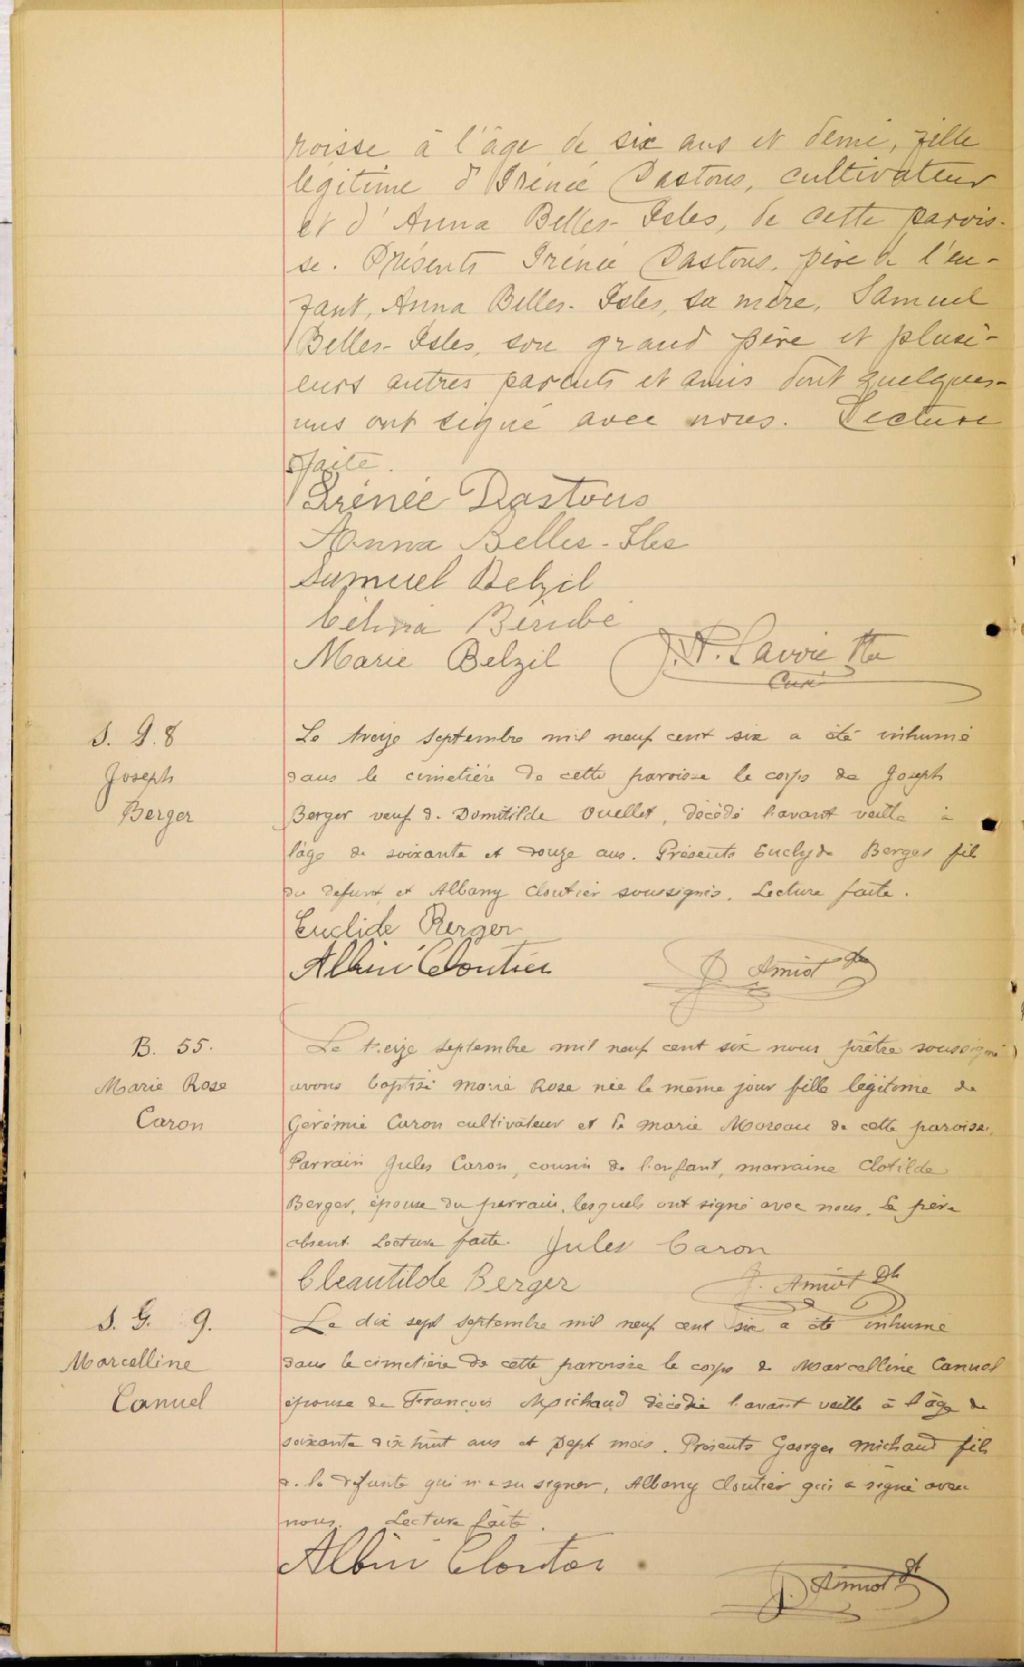 roisse à l'âge de six ans et demi, fille
légitime d'Irénée Dastous, cultivateur
et d'Anna Belles-Isles, de cette parois-
se. Présents Irénée Dastous, père de l'en-
fant, Anna Belles-Isles, sa mère, Samuel
Belles-Isles, son grand père et plusi-
eurs autres parents et amis dont quelques-
uns ont signé avec nous. Lecture
faite.
Irénée Dastous
Anna Belles-Iles
Samuel Belzil
Célina Bérubé
Marie Belzil J. A. Lavoie Ptre
Curé
S. G. 8
Joseph
Berger
Le treize septembre mil neuf cent six a été inhumé
dans le cimetière de cette paroisse le corps de Joseph
Berger veuf de Domitilde Ouellet, décédé l'avant veille à
l'âge de soixante et douze ans. Présents Euclyde Berger fils
du defunt et Albany Cloutier soussignés. Lecture faite.
Euclide Berger
Albini Cloutier Amiot
B. 55.
Marie Rose
Caron
Le treize septembre mil neuf cent six nous prêtre soussigné
avons baptisé Marie Rose née le même jour fille légitime de
Gérémie Caron cultivateur et de Marie Moreau de cette paroisse.
Parrain Jules Caron, cousin de l'enfant, marraine Clotilde
Berger, épouse du parrain, lesquels ont signé avec nous. Le père
absent. Lecture faite. Jules Caron
Cleautilde Berger J. Amiot
S. G. 9.
Marcelline
Canuel
Le dix sept septembre mil neuf cent six a été inhumé
dans le cimetière de cette paroisse le corps de Marcelline Canuel
épouse de François Michaud décédée l'avant veille à l'âge de
soixante dix huit ans et sept mois. Présents Georges Michaud fils
de la défunte qui n'a su signer, Albany Cloutier qui a signé avec
nous. Lecture faite.
Albini Cloutier
Amiot